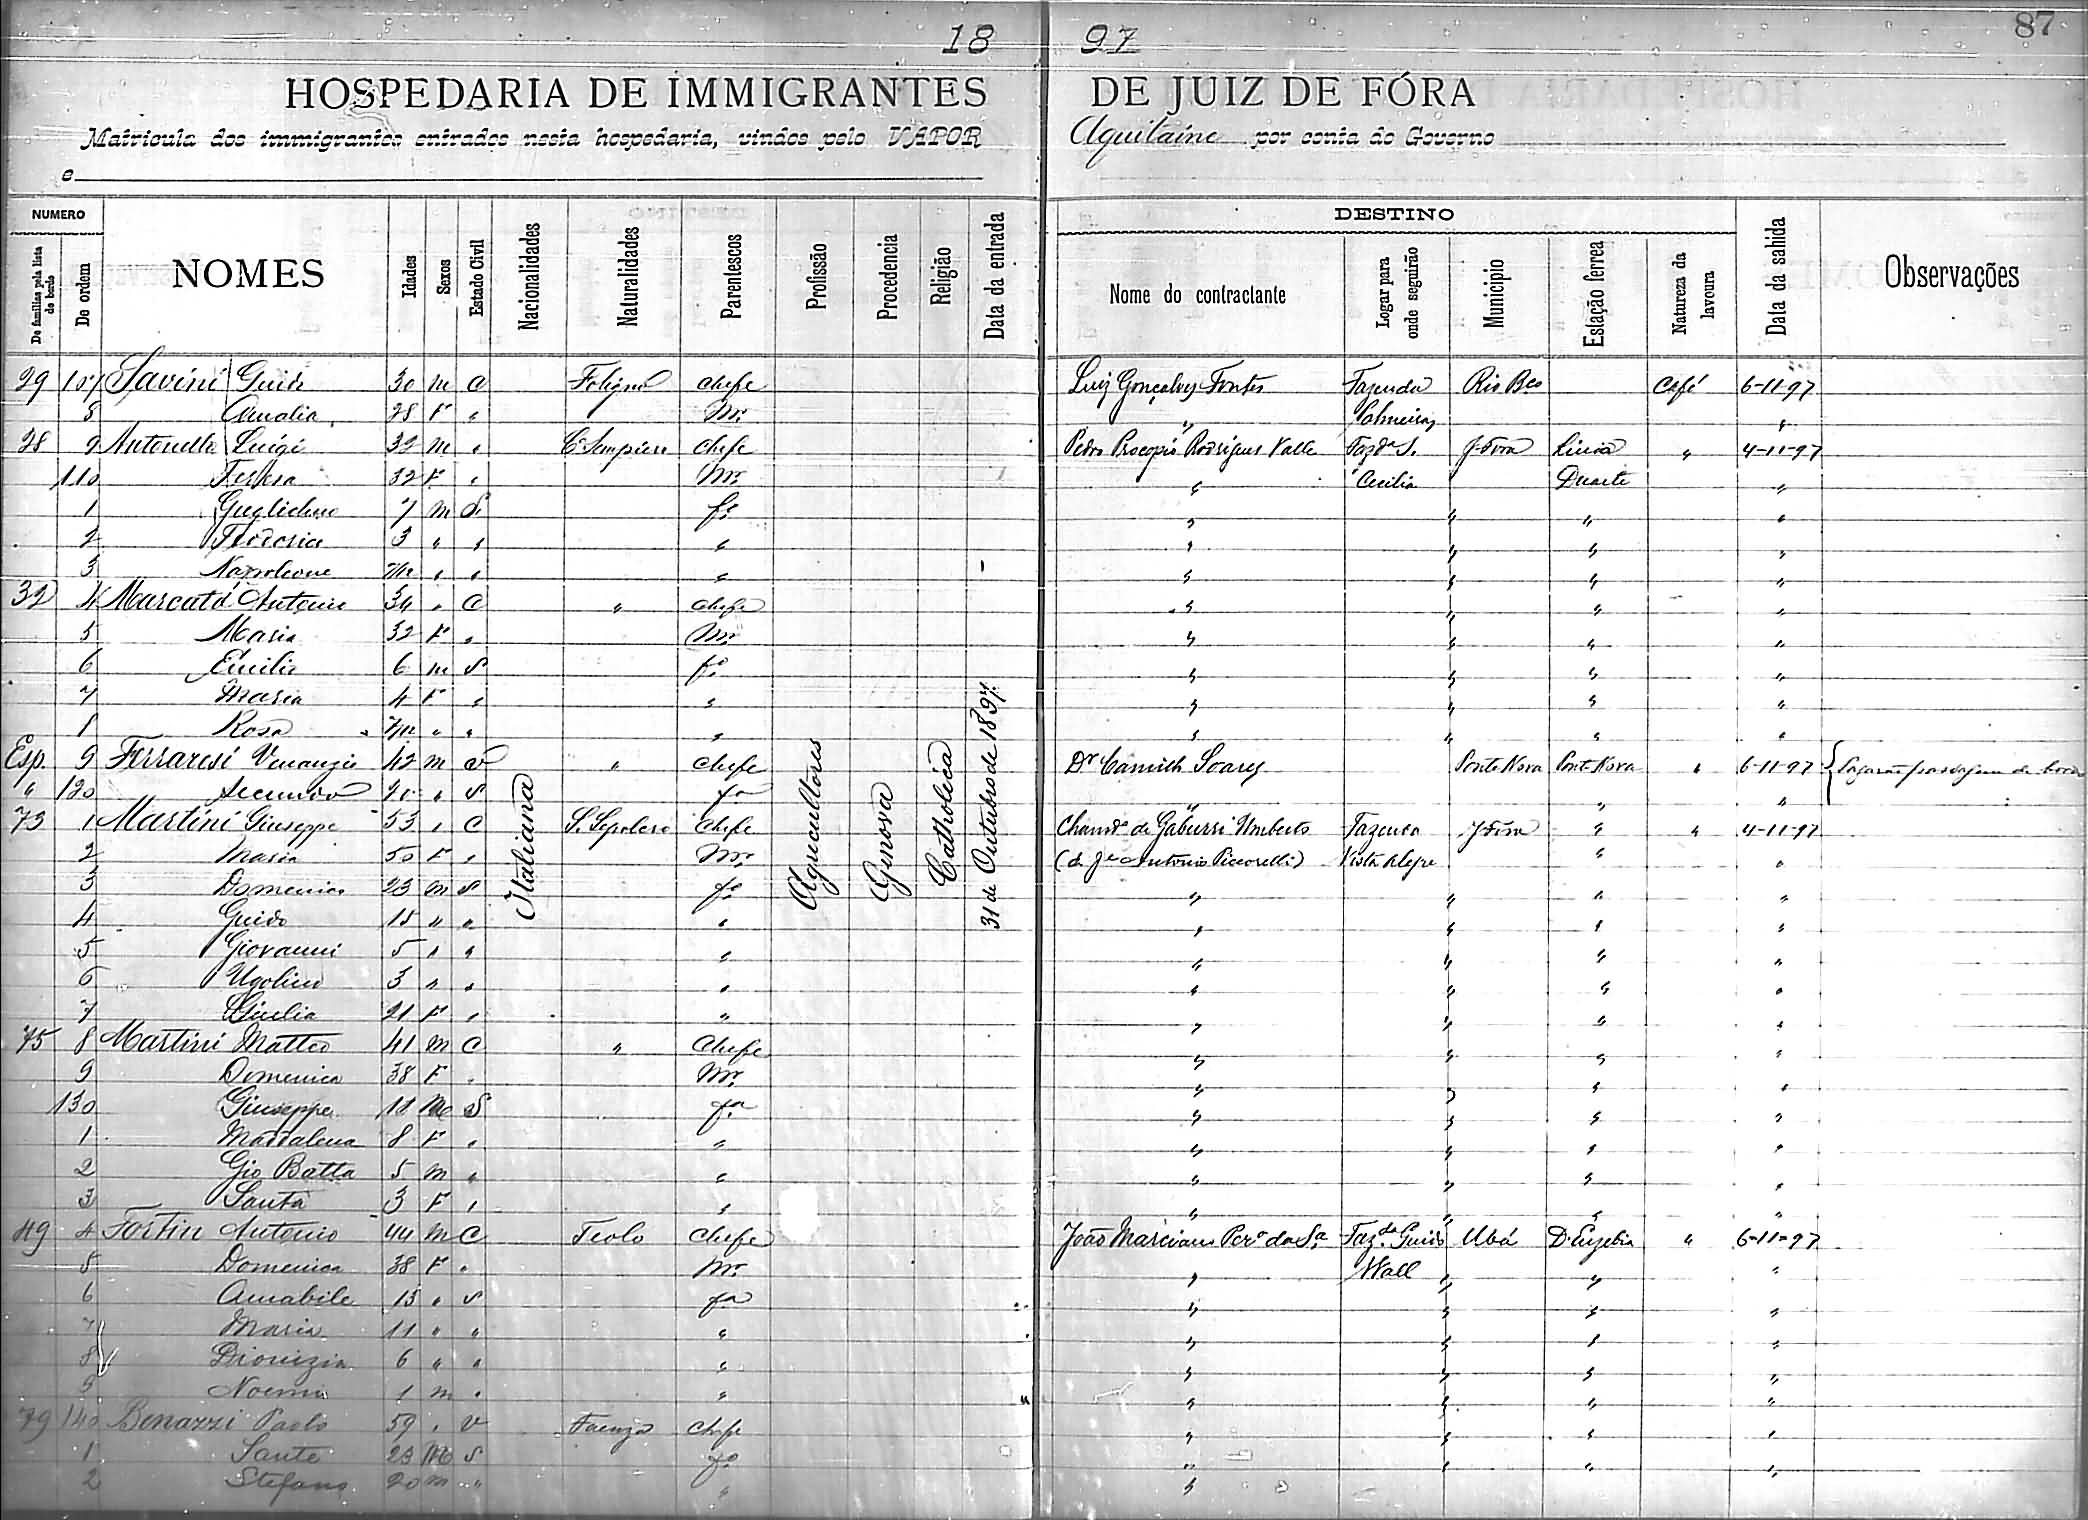 87
18 97
HOSPEDARIA DE IMMIGRANTES DE JUIZ DE FÓRA
Matricula dos immigrantes entrados nesta hospedaria, vindos pelo VAPOR Aquitaine por conta do Governo
e
NUMERO DESTINO
De familias pela lista de bordo De ordem NOMES Idades Sexos Estado Civil Nacionalidades Naturalidades Parentescos Profissão Procedencia Religião Data da entrada Nome do contractante Logar para onde seguirão Municipio Estação ferrea Natureza da lavoura Data da sahida Observações
Italiana Agricultores Genova Catholica 31 de Outubro de 1897
29 107 Savini Guido 30 M C Foligno Chefe Luiz Gonçalves Fontes Fazenda Rio Bco Café 6-11-97
8 Amalia 28 F " Mr. " Palmeiras "
28 9 Antonello Luigi 32 M " C. Sempiero Chefe Pedro Procopio Rodrigues Valle Fazda S. J. Fora Livio " 4-11-97
110 Teresa 32 F " Mr. " Cecilia Duarte "
1 Guglielmo 7 M S fo " " " "
2 3 " " " " " " "
3 Napoleone " " " " " " "
32 4 Marcato Antonio 34 " C " Chefe " " " "
5 Maria 32 F " Mr. " " " "
6 Emilio 6 M S fo " " " "
7 Maria 4 F " " " " " "
8 Rosa " " " " " " "
Esp. 9 Ferraresi Venanzio 42 M V " Chefe Dr Camillo Soares Ponte Nova Ponte Nova " 6-11-97
" 120 Secundo 21 " S fo " " "
73 1 Martini Giuseppe 53 " C S. Sepolcro Chefe Chamdo de Gaburri Umberto Fazenda J. Fora " " 4-11-97
2 Maria 50 F " Mr. Antonio Piccorelli) Vista Alegre " "
3 Domenico 23 M S fo " " " "
4 Guido 15 " " " " " " "
5 Giovanni 5 " " " " " " "
6 Ugolino 3 " " " " " " "
7 Giulia 21 F " " " " " "
75 8 Martini Matteo 41 M C " Chefe " " " "
9 Domenica 38 F " Mr. " " " "
130 Giuseppe 18 M S fo " " " "
1 Maddalena 8 F " " " " " "
2 Gio Batta 5 M " " " " " "
3 Santa 3 F " " " " " "
49 4 Fortin Antonio 44 M C Teolo Chefe João Marciano Pero da Sa Fazda Guido Ubá D. Euzebia " 6-11-97
5 Domenica 38 F " Mr. " Wall " " "
6 Amabile 15 " S fa " " " "
7 Maria 11 " " " " " " "
8 Dionizia 6 " " " " " " "
9 Noemio 1 M " " " " " "
79 140 Benazzi Paolo 59 " V Faenza Chefe " " " "
1 Sante 23 M S fo " " " "
2 Stefano 20 M " " "